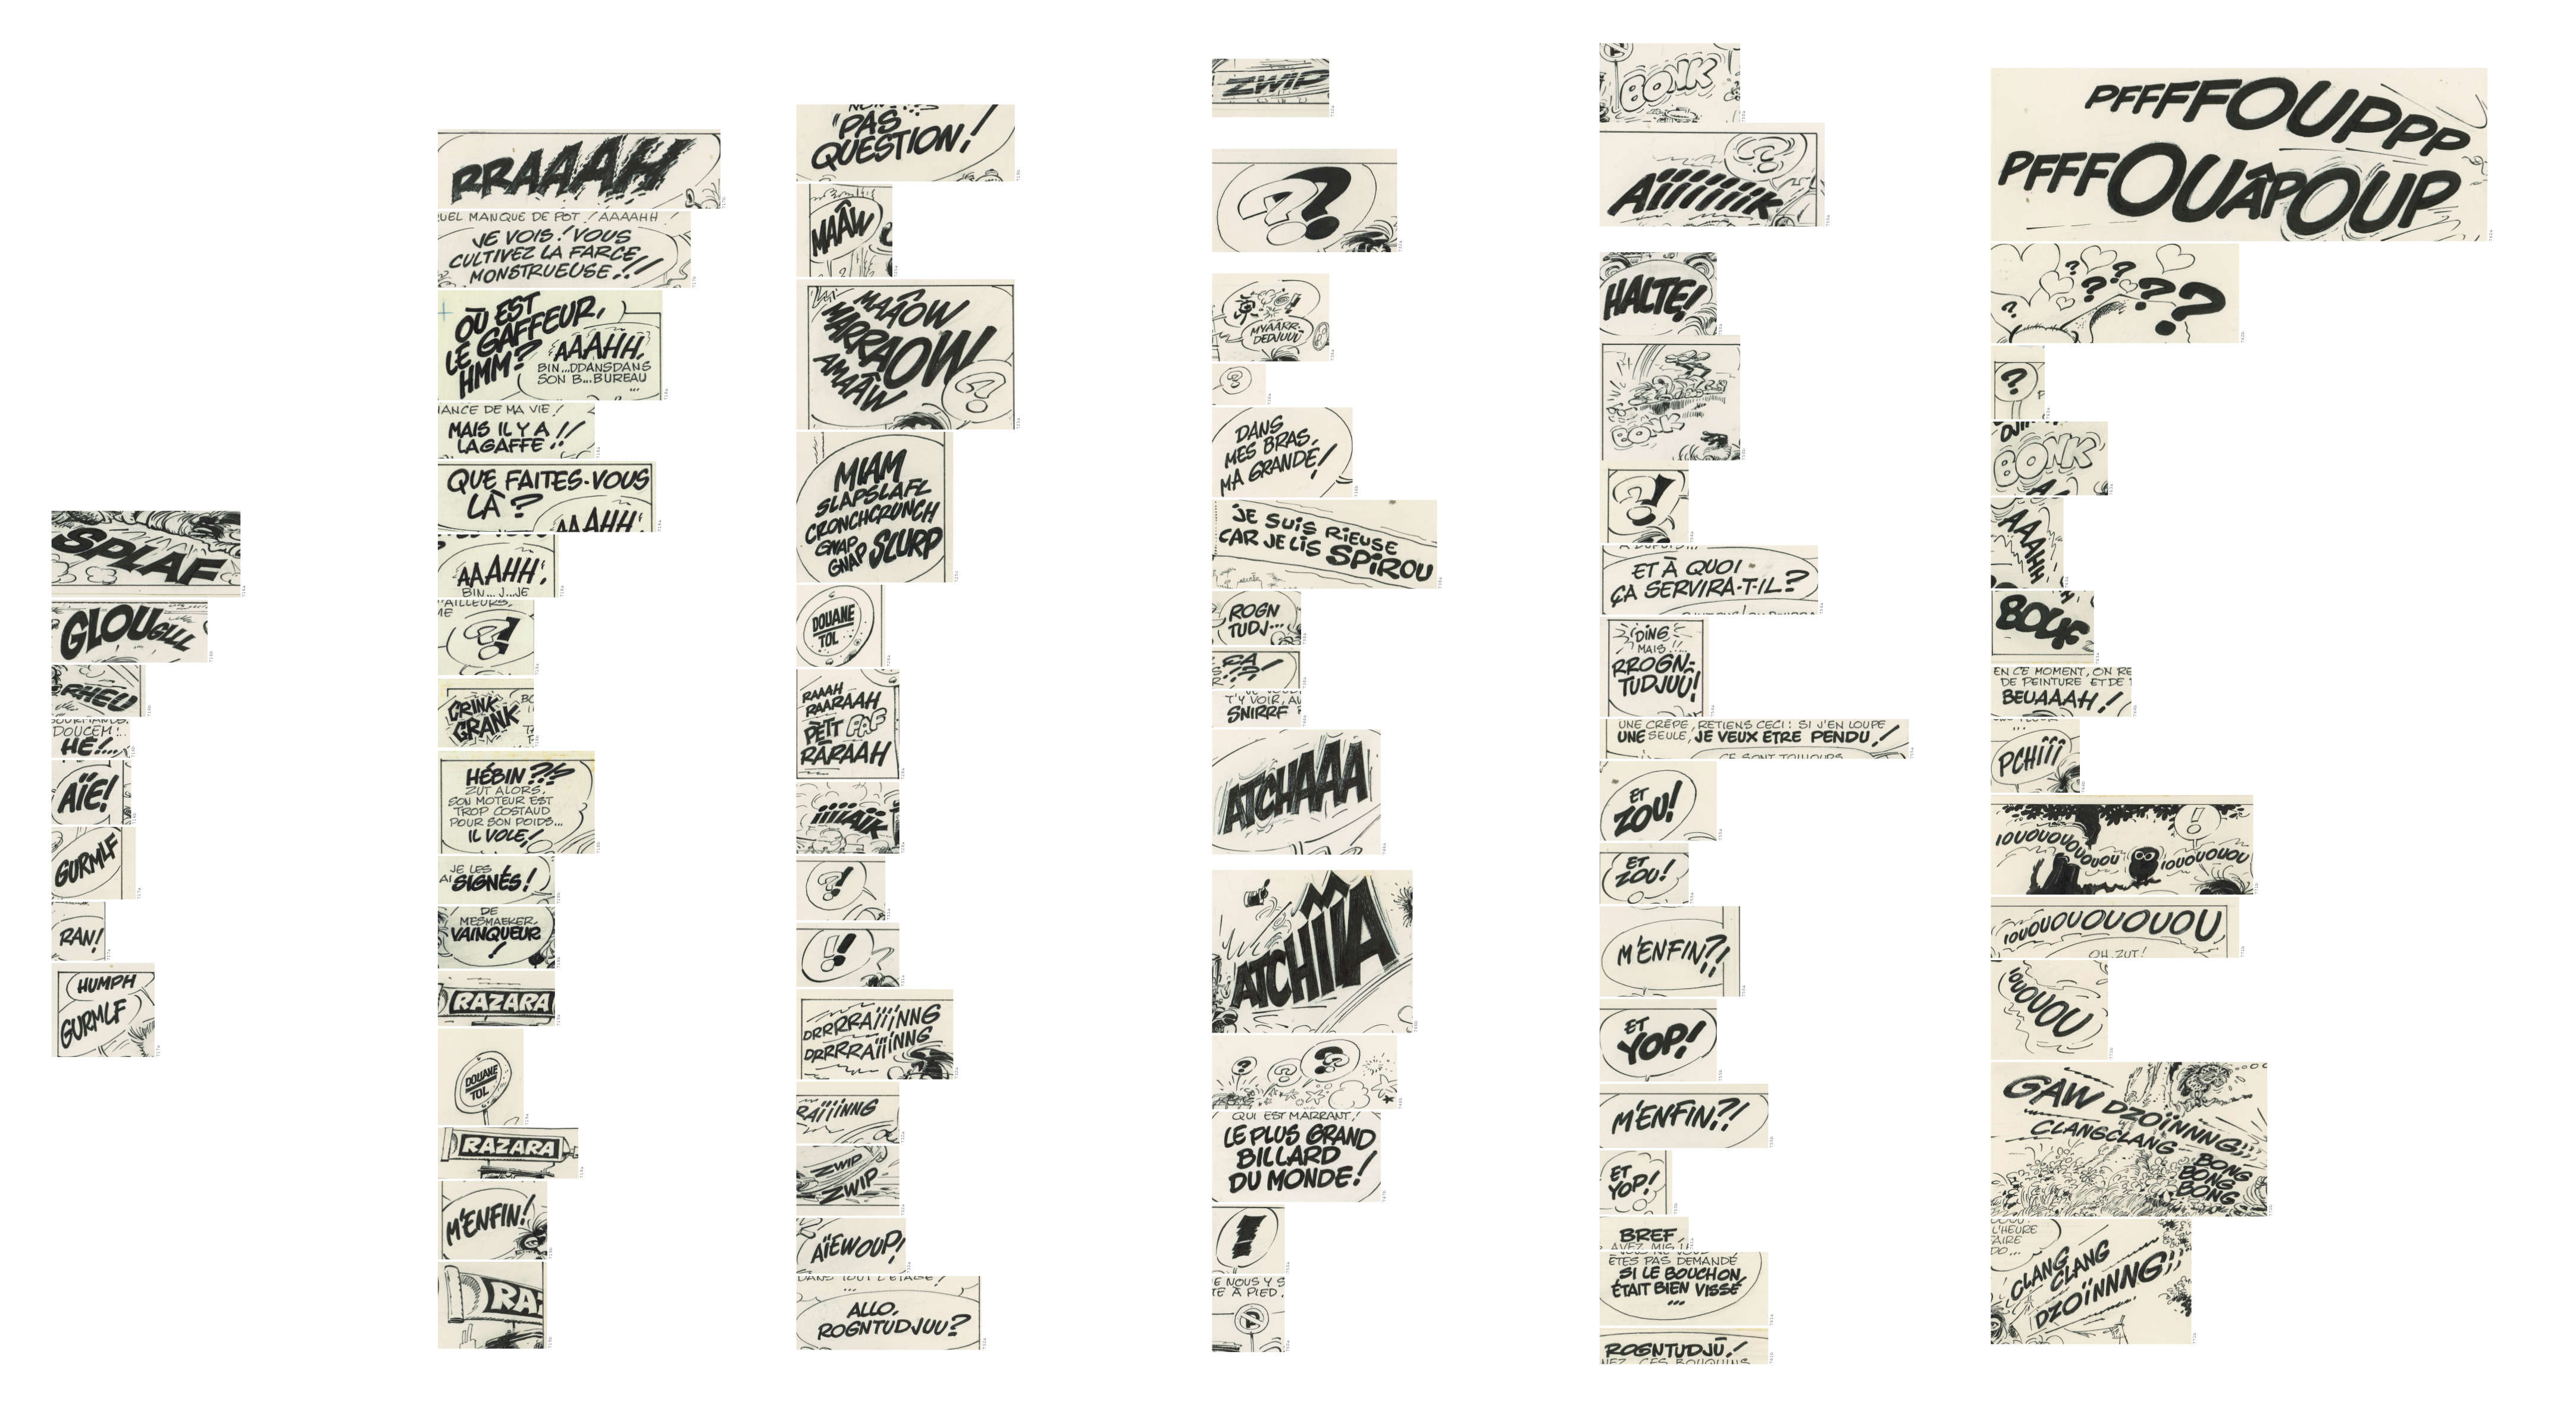 SPLAF
GLOUGLLL
RHEU
DOUCEM!..
HÉ!...
AÏE!
GURMLF
RAN!
HUMPH
GURMLF
RRAAAH
QUEL MANQUE DE POT ! AAAAHH !
JE VOIS! VOUS
CULTIVEZ LA FARCE
MONSTRUEUSE.!!
OÙ EST
LE GAFFEUR,
HMM?
AAAHH,
BIN...DDANSDANS
SON B...BUREAU
...
MAIS IL Y A
LAGAFFE!!
QUE FAITES-VOUS
LÀ?
AAAHH!
AAAHH!
BIN...J...JE
?!
CRINK
CRANK
HÉBIN?!!
ZUT ALORS,
SON MOTEUR EST
TROP COSTAUD
POUR SON POIDS...
IL VOLE!
JE LES
AI SIGNÉS!
DE
MESMAEKER,
VAINQUEUR
!
RAZARA
DOUANE
TOL
RAZARA
M'ENFIN!
RA
PAS
QUESTION!
MAÂW
MAÂOW
MARRAOW
AMAÂW
?
MIAM
SLAPSLAFL
CRONCHCRUNCH
GNAP
GNAP SLURP
DOUANE
TOL
RAAAH
RAARAAH
PÈTT PAF
RÂRAAH
ïïïïAïK
?!
!!
DRRRRAÏÏÏNNG
DRRRRAÏÏÏNNG
RAÏÏÏNNG
ZWIP
ZWIP
AÏEWOUP!
DANS TOUT L'ÉTAGE!
...
ALLO,
ROGNTUDJUU?
ZWIP
??
MYAARR-
DEDJUUU
?
DANS
MES BRAS,
MA GRANDE!
JE SUIS RIEUSE
CAR JE LIS SPIROU
ROGN
TUDJ...
ÇA
T'Y VOIR,
SNIRRF
ATCHAAA
ATCHÏÏA
? ? ?
QUI EST MARRANT,
LE PLUS GRAND
BILLARD
DU MONDE!
!
NOUS Y
À PIED.
BONK
?
AÏÏÏÏÏÏK
HALTE!
BONK
?!
ET À QUOI
ÇA SERVIRA-T-IL?
DING
MAIS!!
RROGN-
TUDJUÛ!
UNE CRÊPE, RETIENS CECI : SI J'EN LOUPE
UNE SEULE, JE VEUX ETRE PENDU!
CE SONT TOUJOURS
ET
ZOU!
ET
ZOU!
M'ENFIN?!
ET
YOP!
M'ENFIN?!
ET
YOP!
BREF,
AVEZ MIS
ÊTES PAS DEMANDÉ
SI LE BOUCHON
ÉTAIT BIEN VISSÉ
...
ROGNTUDJÛ!
CES BOUQUINS
PFFFFOUPPPP
PFFFOUÂPOUP
? ? ? ? ? ?
?
BONK
AAAHH
BOUF
EN CE MOMENT, ON RE
DE PEINTURE ET DE
BEUAAAH!
PCHÏÏÏ
!
IOUOUOUOUOUOU
IOUOUOUOU
IOUOUOUOUOUOU
OH, ZUT!
OUOUOU
GAW DZOÏNNNG
CLANGCLANG
BONG
BONG
BONG
L'HEURE
CLANG
CLANG
DZOÏNNNG